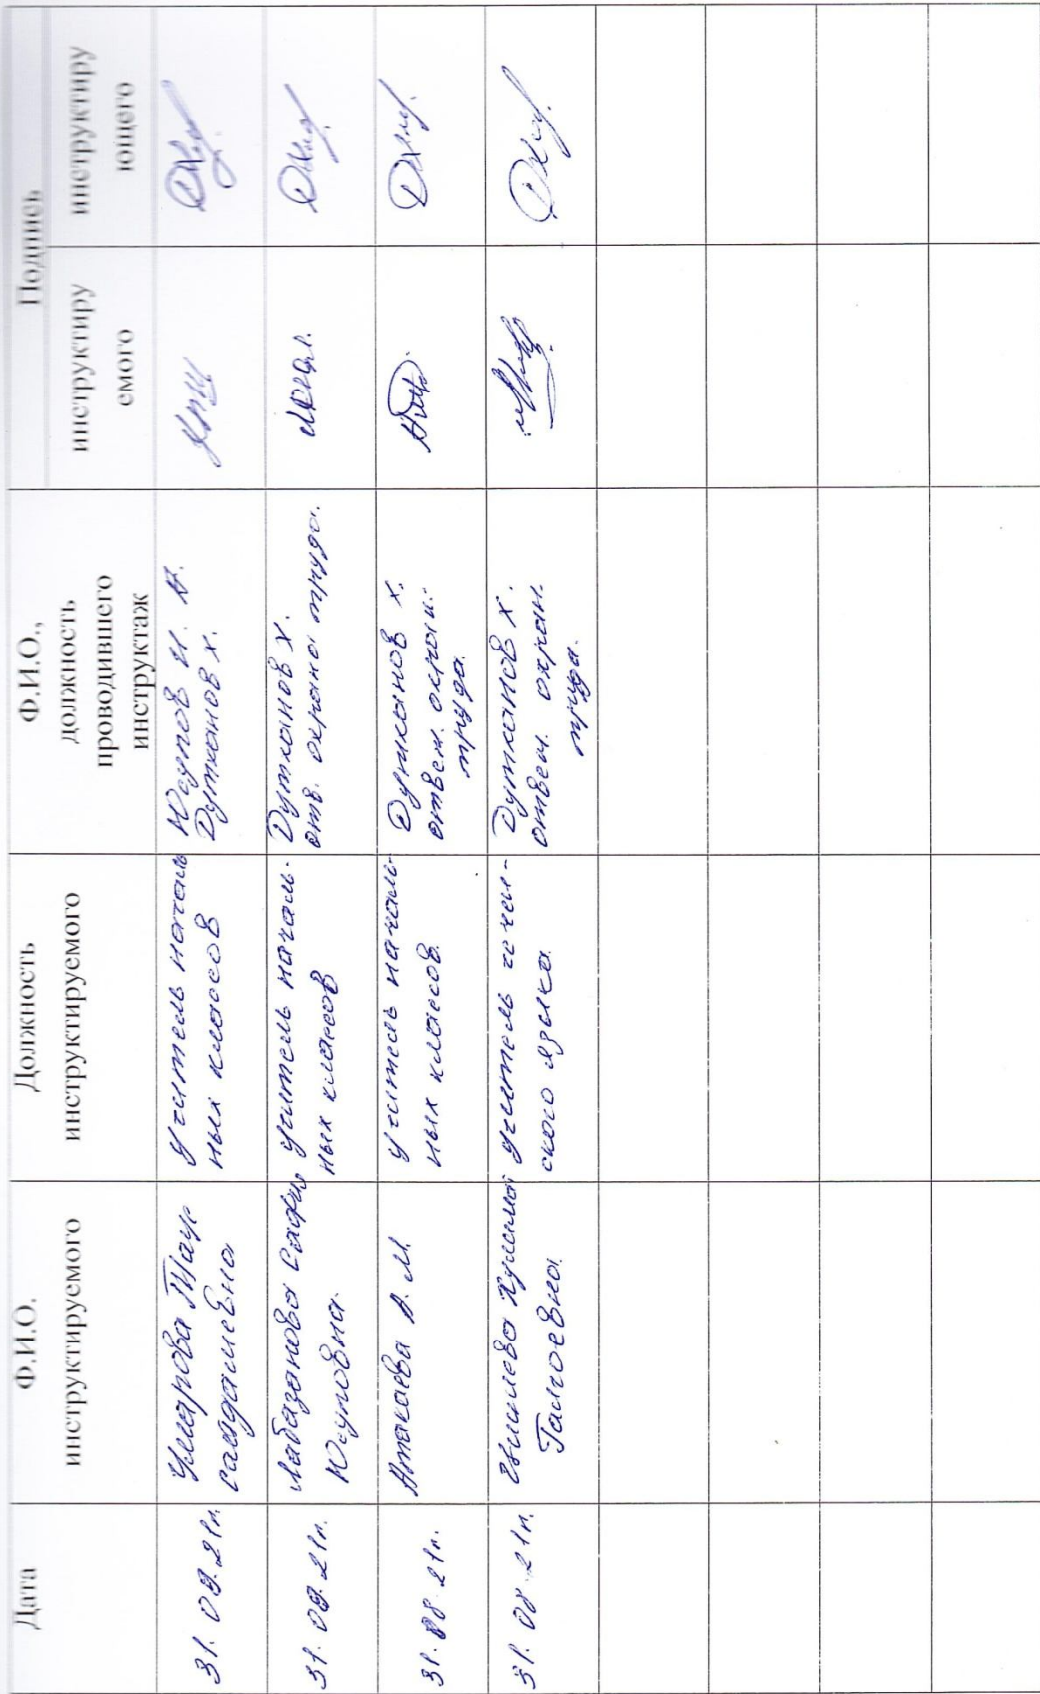 Дата
Ф.И.О.
инструктируемого
Должность
инструктируемого
Ф.И.О.,
должность
проводившего
инструктаж
Подпись
инструктиру
емого
инструктиру
ющего
31.08.21г.
Умарова
учитель началь
ных классов
Юсупов И. А.
Дутханов Х.
31.08.21г.
Лабазанова
Юсуповна.
учитель началь-
ных классов
Дутханов Х.
отв. охрана труда.
31.08.21г.
Атакаева А. М.
учитель началь-
ных классов.
Дутханов Х.
ответ. охран.
труда.
31.08.21г.
учитель чечен-
ского языка.
Дутханов Х.
ответ. охран.
труда.